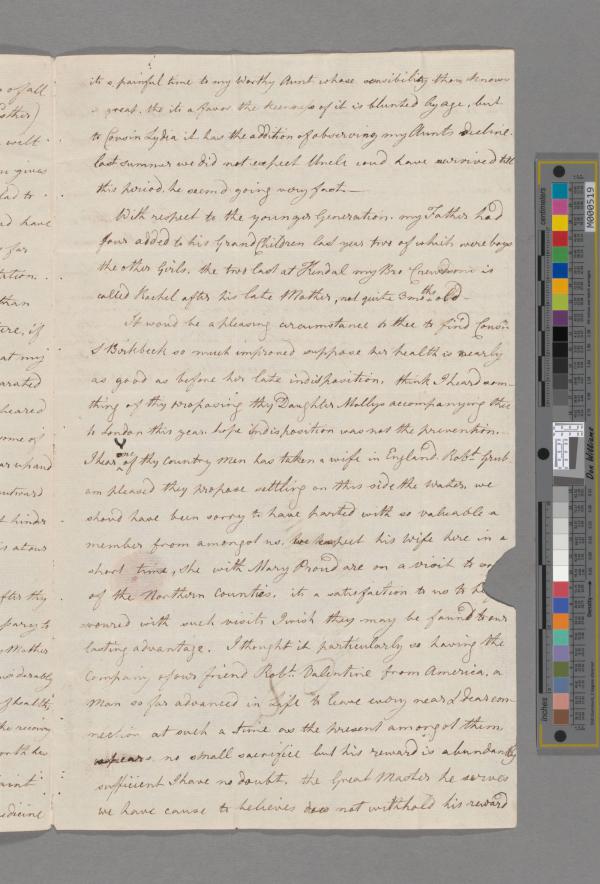 its a painful time to my Worthy Aunt whose sensibility thou knows
is great, tho its a favor the keeness of it is blunted by age, but
to Cousin Lydia it has the addition of observing my Aunts decline.
last summer we did not expect Uncle coud have survived till
this period. he seemd going very fast —
With respect to the younger Generation. my Father had
four added to his Grand Children last year two of which were boys
the other Girls. the two last at Kendal my Bro Crewdsons is
called Rachel after his late Mother, not quite 3 mos. old —
It woud be a pleasing circumstance to thee to find Cousin
S Birkbeck so much improved suppose her health is nearly
as good as before her late indisposition. think I heard some-
thing of thy proposing thy Daughter Mollys accompanying thee
to London this year. hope indisposition was not the prevention.
I hear one of thy Country men has taken a wife in England. Robt. Grub
am pleased they propose settling on this side the water, we
shoud have been sorry to have parted with so valuable a
member from amongst us. we expect his Wife here in a
short time, she with Mary Proud are on a visit to
of the Northern Counties. its a satisfaction to us to be
voured with such visits I wish they may be found to our
lasting advantage. I thought it particularly so having the
Company of our friend Robt. Valentine from America, a
man so far advanced in Life to leave every near & dear con-
nection at such a time as the present amongst them
appears no small sacrifice but his reward is abundantly
sufficient I have no doubt. the Great Master he serves
we have cause to believe does not withhold his reward
of all
Father)
gives
lad to
d have
so far
tation
than
ure, if
at my
arated
heard
some of
outward
t hinder
is at our
after thy
Mother
considerably
of health
M000519
centimeters
inches
Don Williams
Density